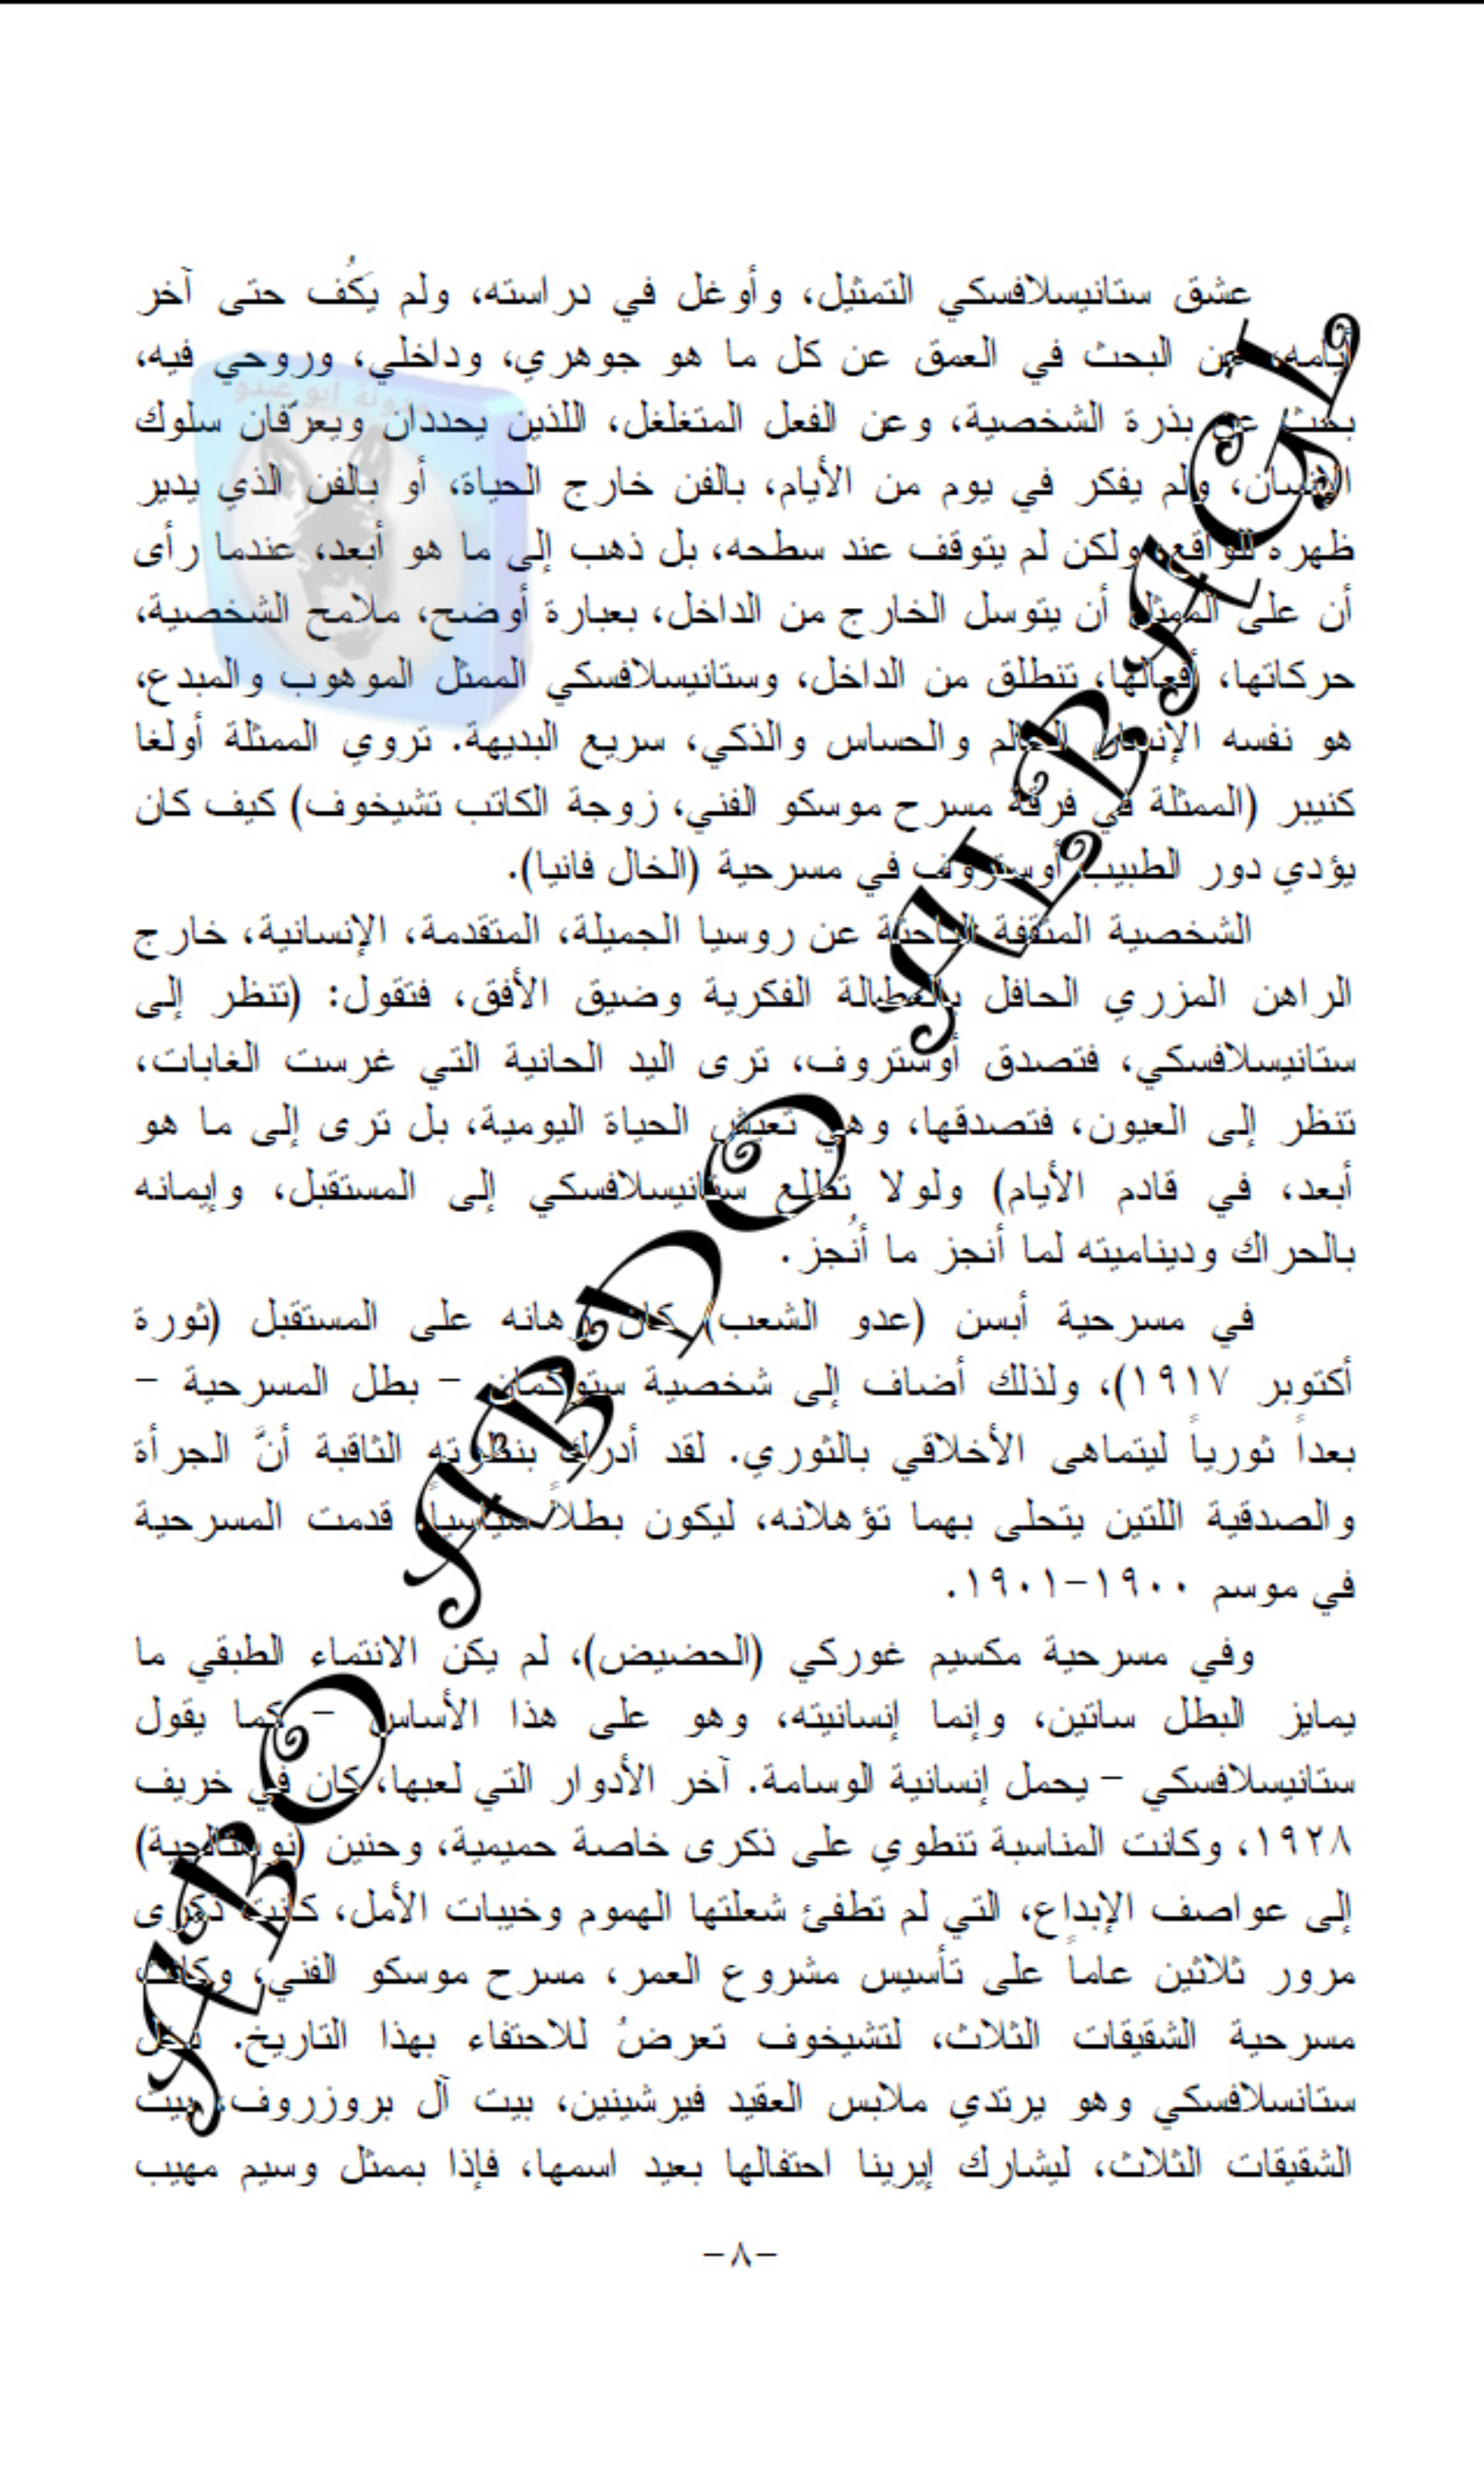 عشق ستانيسلافسكي التمثيل، وأوغل في دراسته، ولم يَكُف حتى آخر
أيامه، عن البحث في العمق عن كل ما هو جوهري، وداخلي، وروحي فيه،
بحث عن بذرة الشخصية، وعن الفعل المتغلغل، اللذين يحددان ويعرّفان سلوك
الإنسان، ولم يفكر في يوم من الأيام، بالفن خارج الحياة، أو بالفن الذي يدير
ظهره للواقع، ولكن لم يتوقف عند سطحه، بل ذهب إلى ما هو أبعد، عندما رأى
أن على الممثل أن يتوسل الخارج من الداخل، بعبارة أوضح، ملامح الشخصية،
حركاتها، أفعالها، تنطلق من الداخل، وستانيسلافسكي الممثل الموهوب والمبدع،
هو نفسه الإنسان العالم والحساس والذكي، سريع البديهة. تروي الممثلة أولغا
كنيبر (الممثلة في فرقة مسرح موسكو الفني، زوجة الكاتب تشيخوف) كيف كان
يؤدي دور الطبيب أوستروف في مسرحية (الخال فانيا).
الشخصية المثقفة الباحثة عن روسيا الجميلة، المتقدمة، الإنسانية، خارج
الراهن المزري الحافل بالعطالة الفكرية وضيق الأفق، فتقول: (تنظر إلى
ستانيسلافسكي، فتصدق أوستروف، ترى اليد الحانية التي غرست الغابات،
تنظر إلى العيون، فتصدقها، وهي تعيش الحياة اليومية، بل ترى إلى ما هو
أبعد، في قادم الأيام) ولولا تطلع ستانيسلافسكي إلى المستقبل، وإيمانه
بالحراك وديناميته لما أنجز ما أُنجز.
في مسرحية أبسن (عدو الشعب) كان رهانه على المستقبل (ثورة
أكتوبر ١٩١٧)، ولذلك أضاف إلى شخصية ستوكمان – بطل المسرحية –
بعداً ثورياً ليتماهى الأخلاقي بالثوري. لقد أدرك بنظرته الثاقبة أنَّ الجرأة
والصدقية اللتين يتحلى بهما تؤهلانه، ليكون بطلاً سياسياً، قدمت المسرحية
في موسم ١٩٠٠-١٩٠١.
وفي مسرحية مكسيم غوركي (الحضيض)، لم يكن الانتماء الطبقي ما
يمايز البطل ساتين، وإنما إنسانيته، وهو على هذا الأساس – كما يقول
ستانيسلافسكي – يحمل إنسانية الوسامة. آخر الأدوار التي لعبها، كان في خريف
١٩٢٨، وكانت المناسبة تنطوي على ذكرى خاصة حميمية، وحنين (نوستالجية)
إلى عواصف الإبداع، التي لم تطفئ شعلتها الهموم وخيبات الأمل، كانت ذكرى
مرور ثلاثين عاماً على تأسيس مشروع العمر، مسرح موسكو الفني، وكانت
مسرحية الشقيقات الثلاث، لتشيخوف تعرضُ للاحتفاء بهذا التاريخ. دخل
ستانسلافسكي وهو يرتدي ملابس العقيد فيرشينين، بيت آل بروزروف، بيت
الشقيقات الثلاث، ليشارك إيرينا احتفالها بعيد اسمها، فإذا بممثل وسيم مهيب
-٨-
ABO ABDO ALBAGL
مدونة ابو عبدو